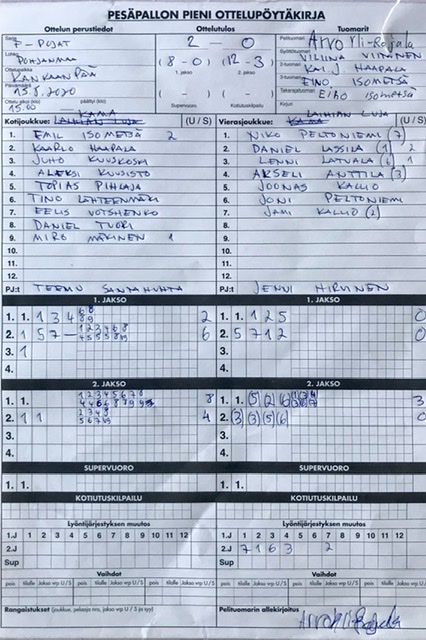 PESÄPALLON PIENI OTTELUPÖYTÄKIRJA
Ottelun perustiedot
Ottelutulos
Tuomarit
Sarja
F-POJAT
2 — 0
Pelituomari
Arvo Yli-Rajala
Lohko
POHJANMAA
(8 - 0) (12 - 3)
1. jakso 2. jakso
Syöttötuomari
VILIINA VIITANEN
Ottelupaikka
KANKAANPÄÄ
2-tuomari
KAI J. HAAPALA
Päivämäärä
15.8.2020
( - ) ( - )
3-tuomari
EINO ISOMETSÄ
Ottelu alkoi (klo) päättyi (klo)
15.00
Supervuoro Kotiutuskilpailu
Takarajatuomari
EINO ISOMETSÄ
Kirjuri
Kotijoukkue: KAMA (U / S)
Vierasjoukkue: LAIHIAN LUJA (U / S)
1. EMIL ISOMETSÄ 2
1. NIKO PELTONIEMI (7)
2. KAARLO HAAPALA
2. DANIEL LASSILA (1) 2
3. JUHO KUUSKOSKI
3. LENNI LATVALA (6) 1
4. ALEKSI KUUSISTO
4. ARSELI ANTTILA (3)
5. TOPIAS PIHLAJA
5. JOONAS KALLIO
6. TINO LÄHTEENMÄKI
6. JONI PELTONIEMI
7. EELIS VOTSHENKO
7. JAMI KALLIO (2)
8. DANIEL TUORI
8.
9. MIRO MÄKINEN 1
9.
10.
10.
11.
11.
12.
12.
PJ:t TEEMU SANTAHUHTA
PJ:t JENNI HIRVINEN
1. JAKSO
1. JAKSO
1. 1. 1 3 4 2
1. 1. 1 2 5 0
2. 1 5 7 — 6
2. 5 7 1 2 0
3. 1
3.
4.
4.
2. JAKSO
2. JAKSO
1. 1. 8
1. 1. (5) (2) (6) 3
2. 1 1 4
2. (3) (3) (5) (6) 0
3.
3.
4.
4.
SUPERVUORO
SUPERVUORO
1. 1.
1. 1.
KOTIUTUSKILPAILU
KOTIUTUSKILPAILU
Lyöntijärjestyksen muutos
Lyöntijärjestyksen muutos
1 2 3 4 5 6 7 8 9 10 11 12
1 2 3 4 5 6 7 8 9 10 11 12
1.J
1.J
2.J
2.J 7 1 6 3 2
Sup
Sup
Vaihdot
Vaihdot
pois tilalle Jakso vp U / S pois tilalle Jakso vp U / S
pois tilalle Jakso vp U / S pois tilalle Jakso vp U / S
Rangaistukset (joukkue, pelaaja nro, jakso vp U / S ja syy)
Pelituomarin allekirjoitus
Arvo Yli-Rajala